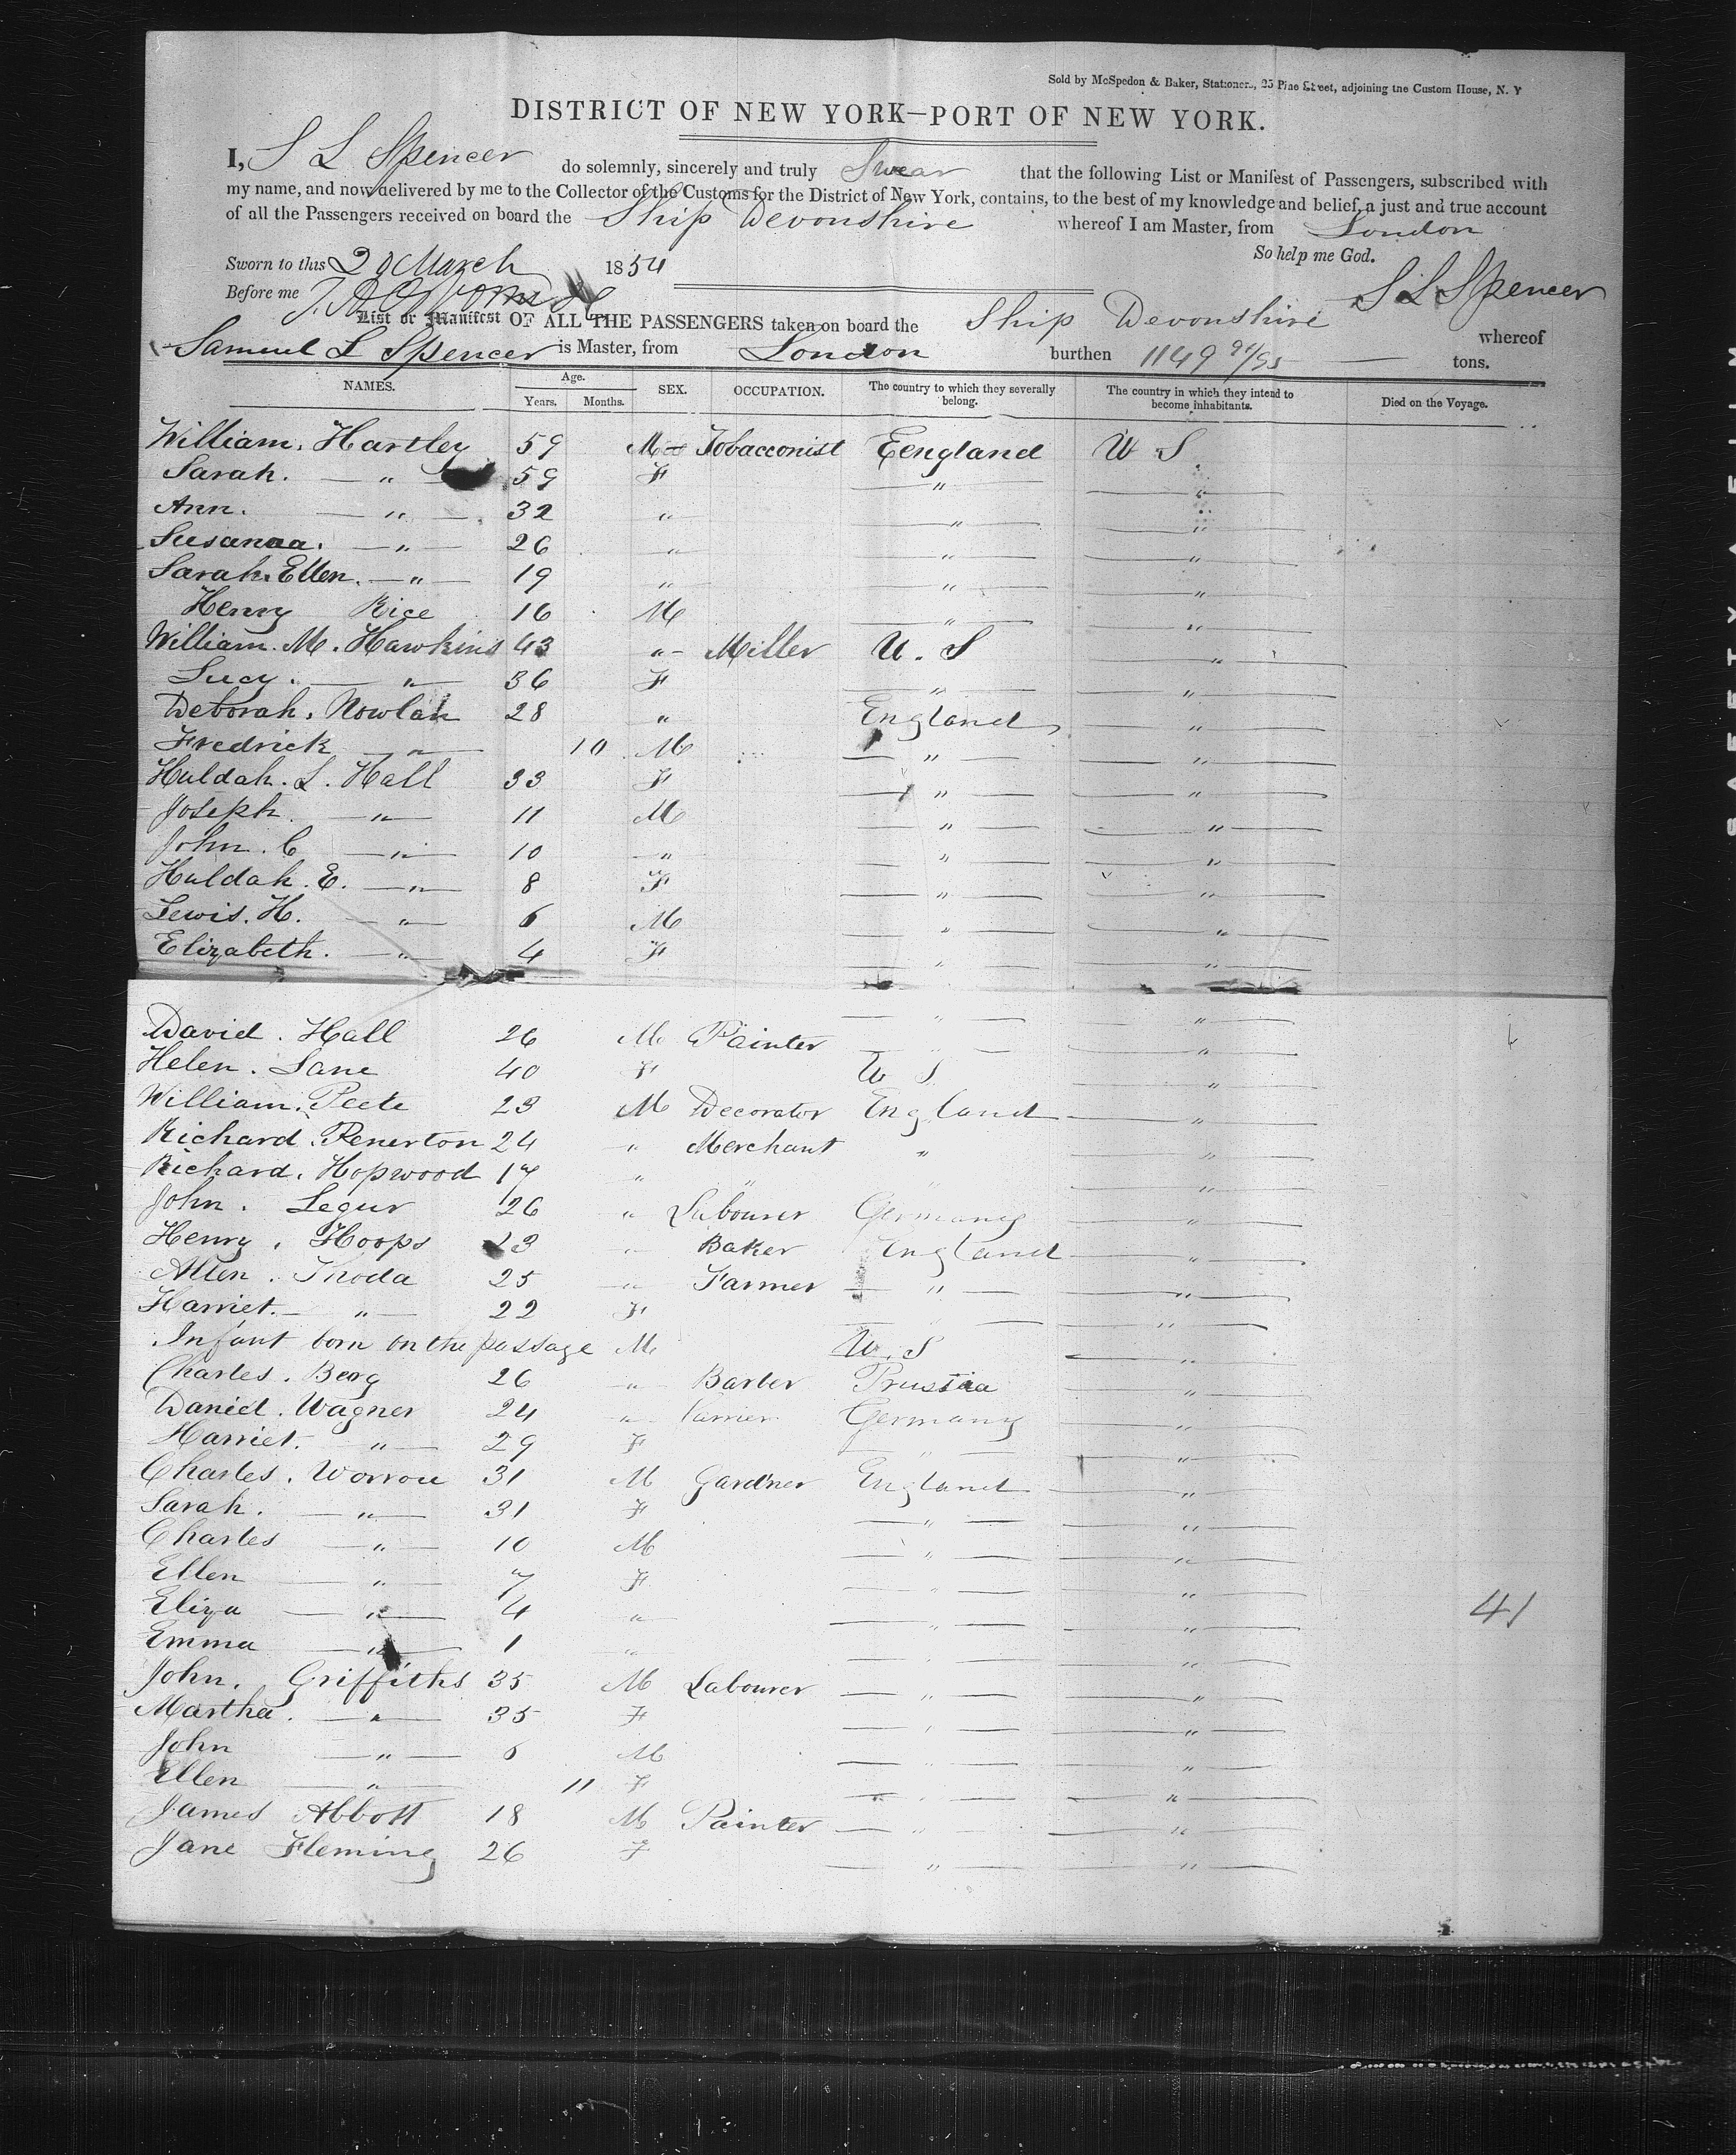 Sold by McSpedon & Baker, Stationers, 25 Pine Street, adjoining the Custom House, N. Y
DISTRICT OF NEW YORK—PORT OF NEW YORK.
I, S L Spencer do solemnly, sincerely and truly Swear that the following List or Manifest of Passengers, subscribed with
my name, and now delivered by me to the Collector of the Customs for the District of New York, contains, to the best of my knowledge and belief, a just and true account
of all the Passengers received on board the Ship Devonshire whereof I am Master, from London
So help me God.
Sworn to this March 1854
S L Spencer
Before me
List or Manifest OF ALL THE PASSENGERS taken on board the Ship Devonshire whereof
Samuel L Spencer is Master, from London burthen 1149 tons.
NAMES. Age. Years. Months. SEX. OCCUPATION. The country to which they severally belong. The country in which they intend to become inhabitants. Died on the Voyage.
William. Hartley 59 M Tobacconist Eengland U S
Sarah. — " — 59 F — " — — " —
Ann. — " — 32 " — " — — " —
Susanna. — " — 26 " — " — — " —
Sarah. Ellen. — " — 19 " — " — — " —
Henry Rice 16 M — " — — " —
William. M. Hawkins 43 " Miller U. S — " —
Lucy. — " — 36 F — " — — " —
Deborah. Nowlan 28 " England — " —
Fredrick — " — 10 M — " — — " —
Huldah. L. Hall 33 F — " — — " —
Joseph. — " — 11 M — " — — " —
John. C — " — 10 " — " — — " —
Huldah. E. — " — 8 F — " — — " —
Lewis. H. — " — 6 M — " — — " —
Elizabeth. — " — 4 F — " — — " —
David. Hall 26 M Painter — " — — " —
Helen. Lane 40 F U S — " —
William. Peete 23 M Decorator England — " —
Richard. Renerton 24 " Merchant " — " —
Richard. Hopwood 17 " " — " —
John. Legur 26 " Labourer Germany — " —
Henry. Hoops 23 " Baker England — " —
Allen. Thoda 25 " Farmer — " — — " —
Harriet. — " — 22 F — " — — " —
Infant born on the passage M U. S — " —
Charles. Berg 26 " Barber Prussia — " —
Daniel. Wagner 24 " Germany — " —
Harriet. — " — 29 F — " — — " —
Charles. Worrou 31 M Gardner England — " —
Sarah. — " — 31 F — " — — " —
Charles — " — 10 M — " — — " —
Ellen — " — 7 F — " — — " —
Eliza — " — 4 " — " — — " —
41
Emma — " — 1 " — " — — " —
John. Griffiths 35 M Labourer — " — — " —
Martha. — " — 35 F — " — — " —
John — " — 6 M — " — — " —
Ellen — " — 11 F — " — — " —
James Abbott 18 M Painter — " — — " —
Jane Fleming 26 F — " — — " —